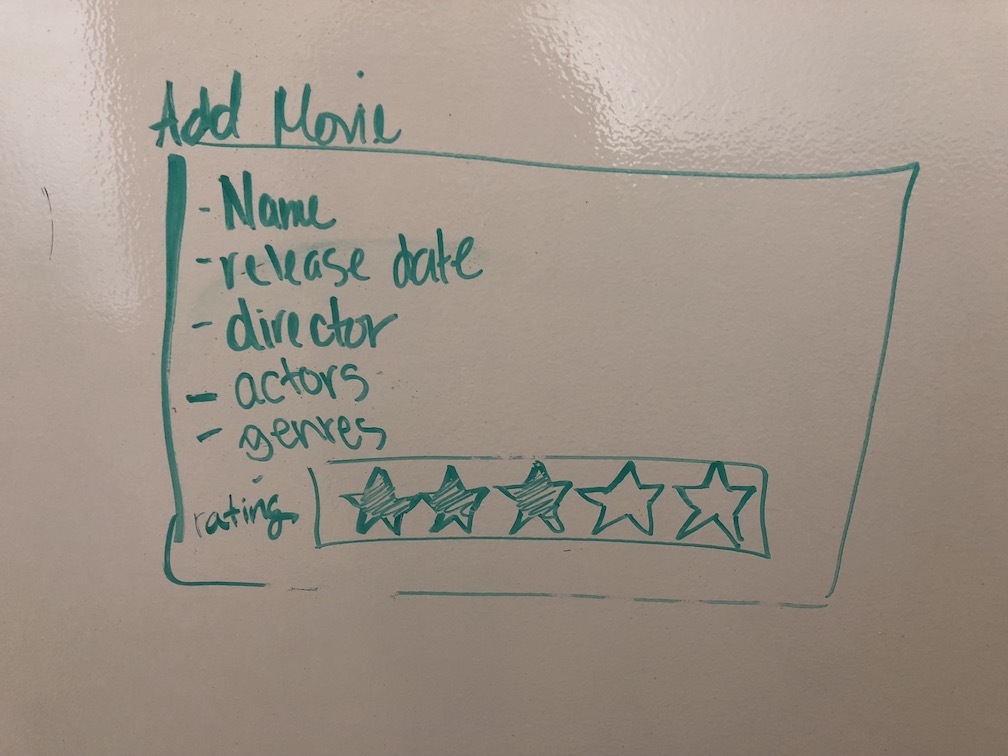 Add Movie
- Name
- release date
- director
- actors
- genres
rating